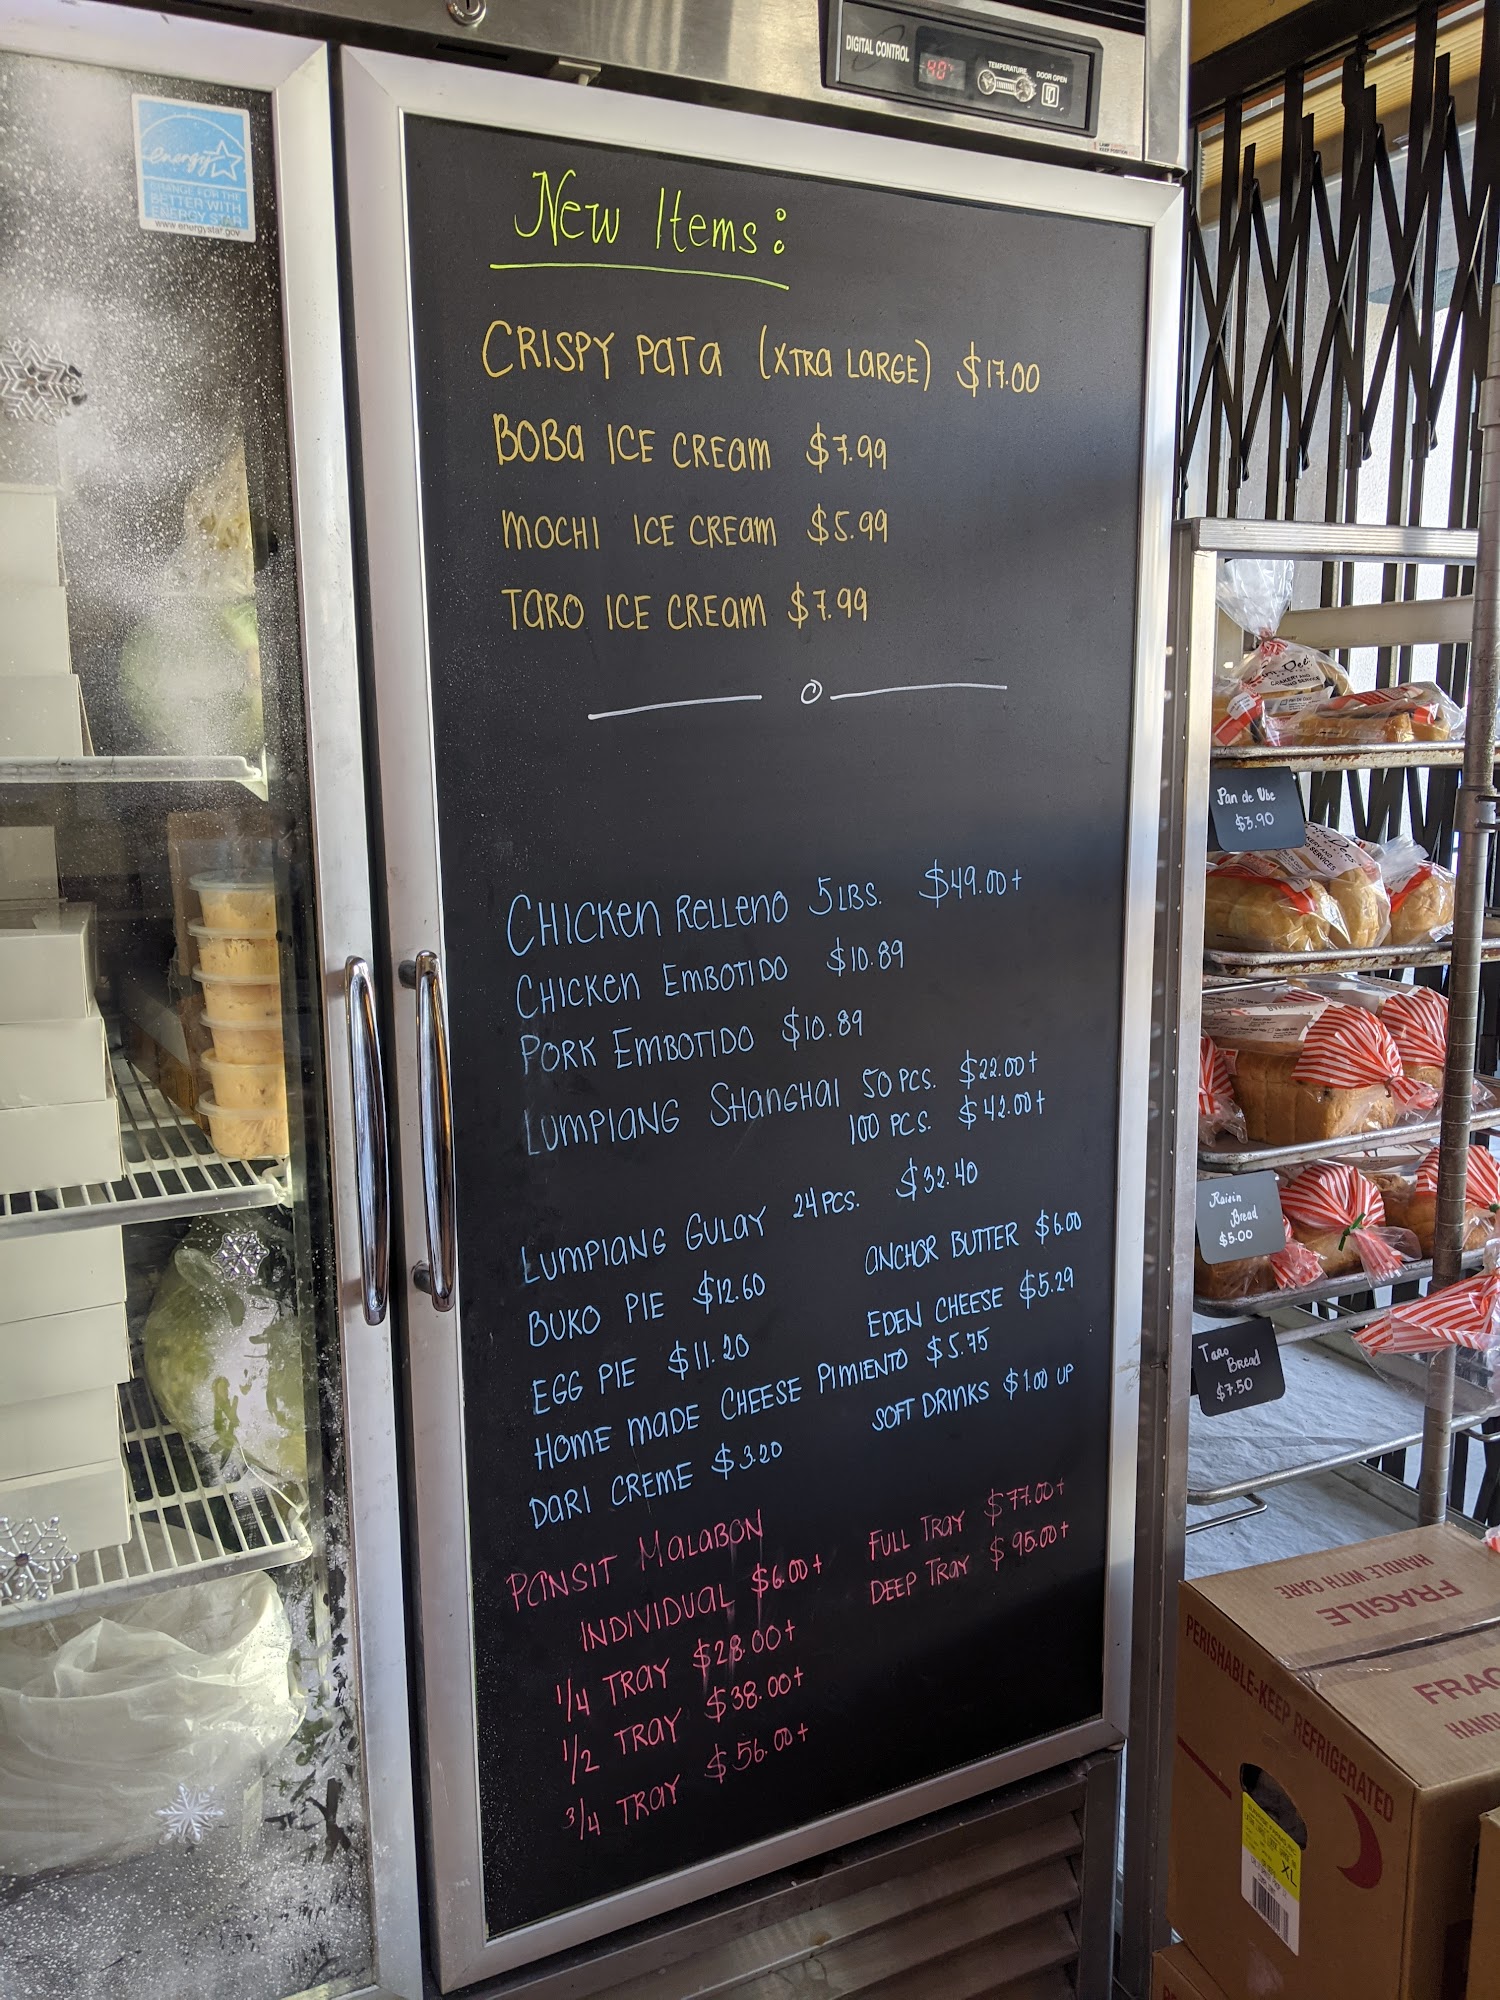 DIGITAL CONTROL
TEMPERATURE
DOOR OPEN
energy
CHANGE FOR THE
BETTER WITH
ENERGY STAR
www.energystar.gov
New Items:
CRISPY PATA (XTRA LARGE) $17.00
BOBA ICE CREAM $7.99
MOCHI ICE CREAM $5.99
TARO ICE CREAM $7.99
CHICKEN RELLENO 5LBS. $49.00+
CHICKEN EMBOTIDO $10.89
PORK EMBOTIDO $10.89
LUMPIANG SHANGHAI 50 PCS. $22.00+
100 PCS. $42.00+
LUMPIANG GULAY 24PCS. $32.40
BUKO PIE $12.60
ANCHOR BUTTER $6.00
EGG PIE $11.20
EDEN CHEESE $5.29
HOME MADE CHEESE PIMIENTO $5.75
DARI CREME $3.20
SOFT DRINKS $1.00 UP
PANSIT MALABON
INDIVIDUAL $6.00+
1/4 TRAY $28.00+
1/2 TRAY $38.00+
3/4 TRAY $56.00+
FULL TRAY $77.00+
DEEP TRAY $95.00+
Pan de Ube
$3.90
Raisin
Bread
$5.00
Taro
Bread
$7.50
HANDLE WITH CARE
FRAGILE
PERISHABLE-KEEP REFRIGERATED
XL